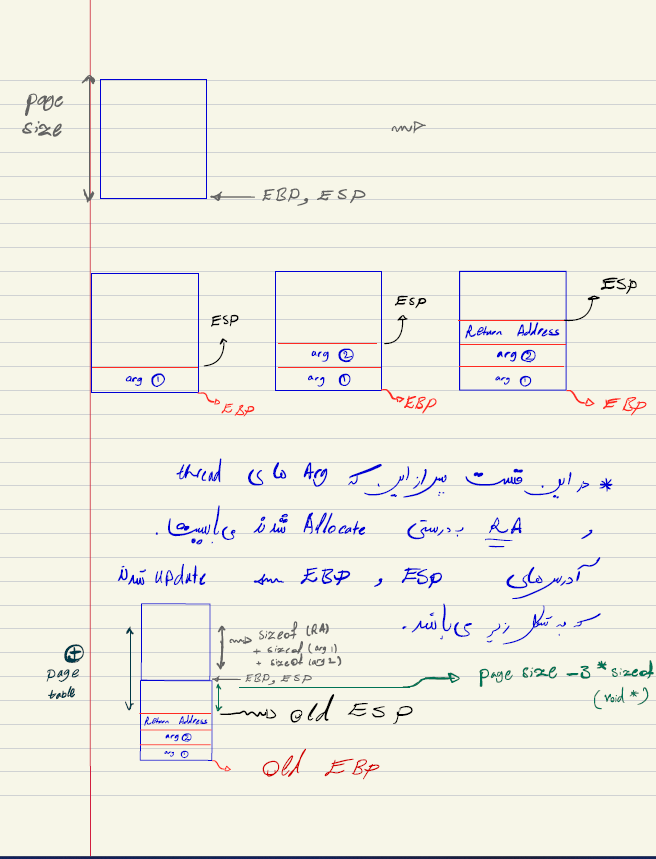 page
size
EBP, ESP
ESP
arg ①
EBP
ESP
arg ②
arg ①
EBP
ESP
Return Address
arg ②
arg ①
EBP
* در این قسمت پس از این که Arg های thread
و RA به درستی Allocate شدند می‌بایست
آدرس‌های ESP و EBP update شوند
که به شکل زیر می‌باشد.
page
table
sizeof (RA)
+ sizeof (arg 1)
+ sizeof (arg 2)
EBP, ESP
page size - 3 * sizeof
(void *)
old ESP
Return Address
arg ②
arg ①
Old EBP